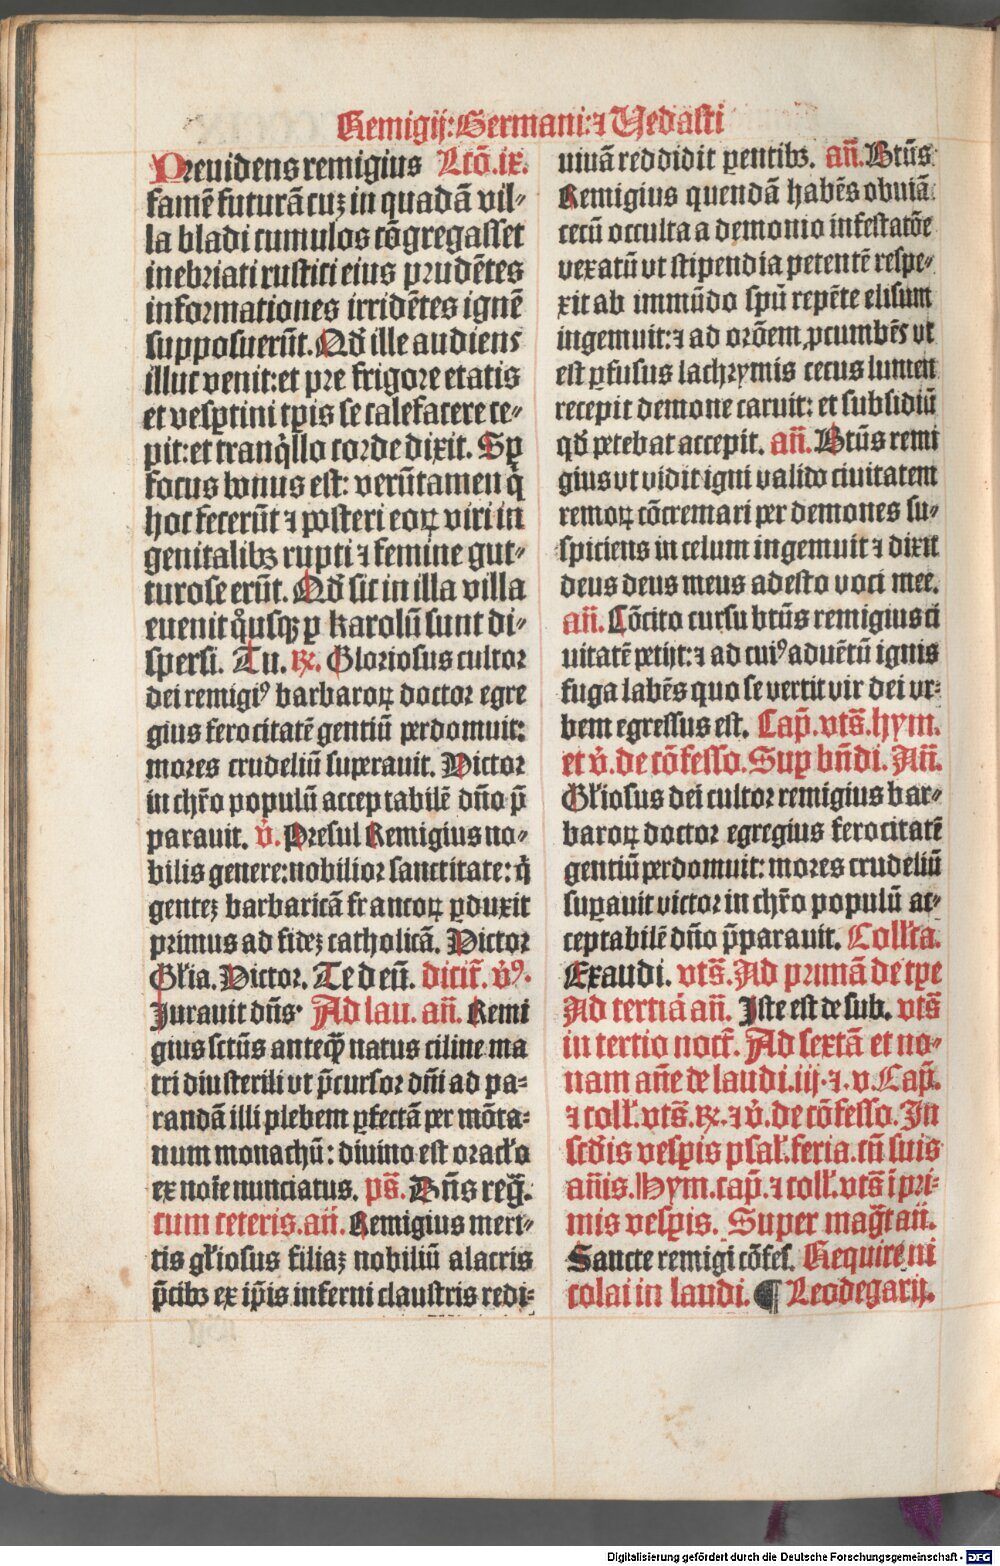 Remigij: Germani: ⁊ Vedasti
Preuidens remigius Lcō.ix.
famē futurā cuꝫ in quadā vil⸗
la bladi cumulos cōgregasset
inebriati rustici eius prudētes
informationes irridētes ignē
supposuerūt. Qđ ille audiens
illuc venit: et pre frigore etatis
et vesꝑtini tꝑis se calefacere ce⸗
pit: et tranqͥllo corde dixit. Sꝑ
focus bonus est: verūtamen qͥ
hoc fecerūt ⁊ posteri eoꝝ viri in
genitalibꝫ rupti ⁊ femine gut⸗
turose erūt. Qđ sic in illa villa
euenit qͦusqꝫ ꝑ karolū sunt di⸗
spersi. Tu. ℞. Gloriosus cultor
dei remigiꝰ barbaroꝝ doctor egre
gius ferocitatē gentiū perdomuit:
mores crudeliū superauit. Victor
in chr̄o populū acceptabilē dn̄o p̄
parauit. v̓. Presul Remigius no⸗
bilis genere: nobilior sanctitate: qͥ
genteꝫ barbaricā francoꝝ ꝑduxit
primus ad fideꝫ catholicā. Victor
Gl̄ia. Victor. Te deū. dicit̄. v̓ꝰ.
Jurauit dn̄s. Ad lau. an̄. Remi
gius sctūs anteqꝫ̄ natus ciline ma
tri diu sterili vt p̄cursor dn̄i ad pa⸗
randā illi plebem ꝑfectā per mōta⸗
num monachū: diuino est oracl̄o
ex noīe nunciatus. ps̄. Dn̄s reḡ.
cum ceteris. an̄. Remigius meri⸗
tis gl̄iosus filiaꝫ nobiliū alacris
p̄cibꝫ ex ip̄is inferni claustris redi⸗
uiuā reddidit ꝑentibꝫ. an̄. Btūs
Remigius quendā habēs obuiā
cecū occulta a demonio infestatōe
vexatū vt stipendia petentē respe⸗
xit ab immūdo spū repēte elisum
ingemuit: ⁊ ad orōem ꝓcumbēs vt
est ꝑfusus lachrymis cecus lumen
recepit demone caruit: et subsidiū
qđ petebat accepit. an̄. Btūs remi
gius vt vidit igni valido ciuitatem
remoꝝ cōcremari per demones su⸗
spiciens in celum ingemuit ⁊ dixit
deus deus meus adesto voci mee.
an̄. Cōcito cursu btūs remigius ci
uitatē petijt: ⁊ ad cuiꝰ aduētū ignis
fuga labēs quo se vertit vir dei vr⸗
bem egressus est. Cap̄. vts̄. hym.
et v̓. de cōfesso. Suꝑ bn̄di. An̄.
Gl̄iosus dei cultor remigius bar⸗
baroꝝ doctor egregius ferocitatē
gentiū perdomuit: mores crudeliū
suꝑauit victor in chr̄o populū ac⸗
ceptabilē dn̄o p̄parauit. Coll̄ta.
Exaudi. vts̄. Ad primā de tꝑe
Ad tertiā an̄. Iste est de sub. vts̄
in tertio noct̄. Ad sextā et no⸗
nam an̄e de laudi. iij. ⁊. v. Cap̄.
⁊ coll̄. vts̄. ℞. ⁊ v̓. de cōfesso. In
scđis vesꝑis psal̄. feria. cū suis
an̄is. Hym. cap̄. ⁊ coll̄. vts̄ ī pri⸗
mis vesꝑis. Super maḡt an̄.
Sancte remigi cōfes̄. Require ni
colai in laudi. ¶ Leodegarij.
Digitalisierung gefördert durch die Deutsche Forschungsgemeinschaft - DFG